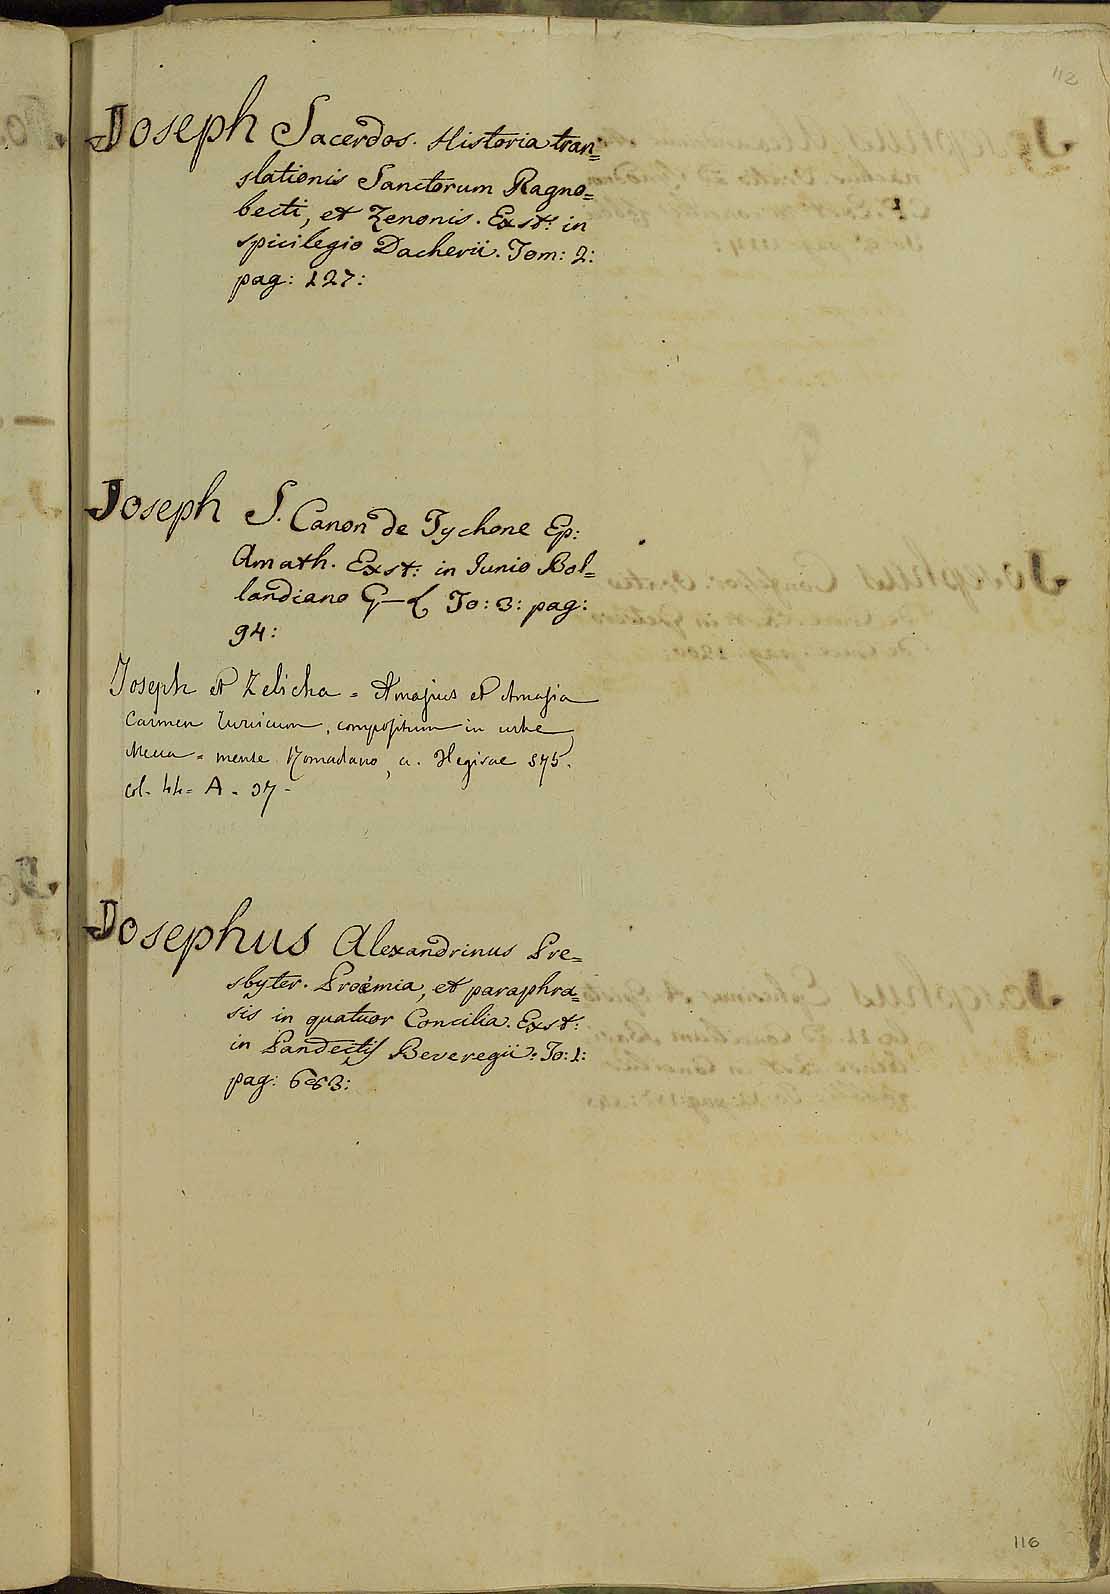 112
Joseph Sacerdos. Historia tran=
slationis Sanctorum Ragno=
becti, et Zenonis. Exst: in
spicilegio Dacherii. Tom: 2:
pag: 127:
Joseph S. Canon de Tychone Ep:
Amath. Exst: in Junio Bol=
landiano G—L To: 3: pag:
94:
Joseph et Zelicha = Amasius et Amasia
Carmen Turcicum, compositum in urbe
Mecca = mense Romadano, a. Hegirae 875.
col. 44= A. 37-
Josephus Alexandrinus Pre=
sbyter. Proëmia, et paraphra=
sis in quatuor Concilia. Exst:
in Pandectis Beveregii: To: 1:
pag: 683:
116